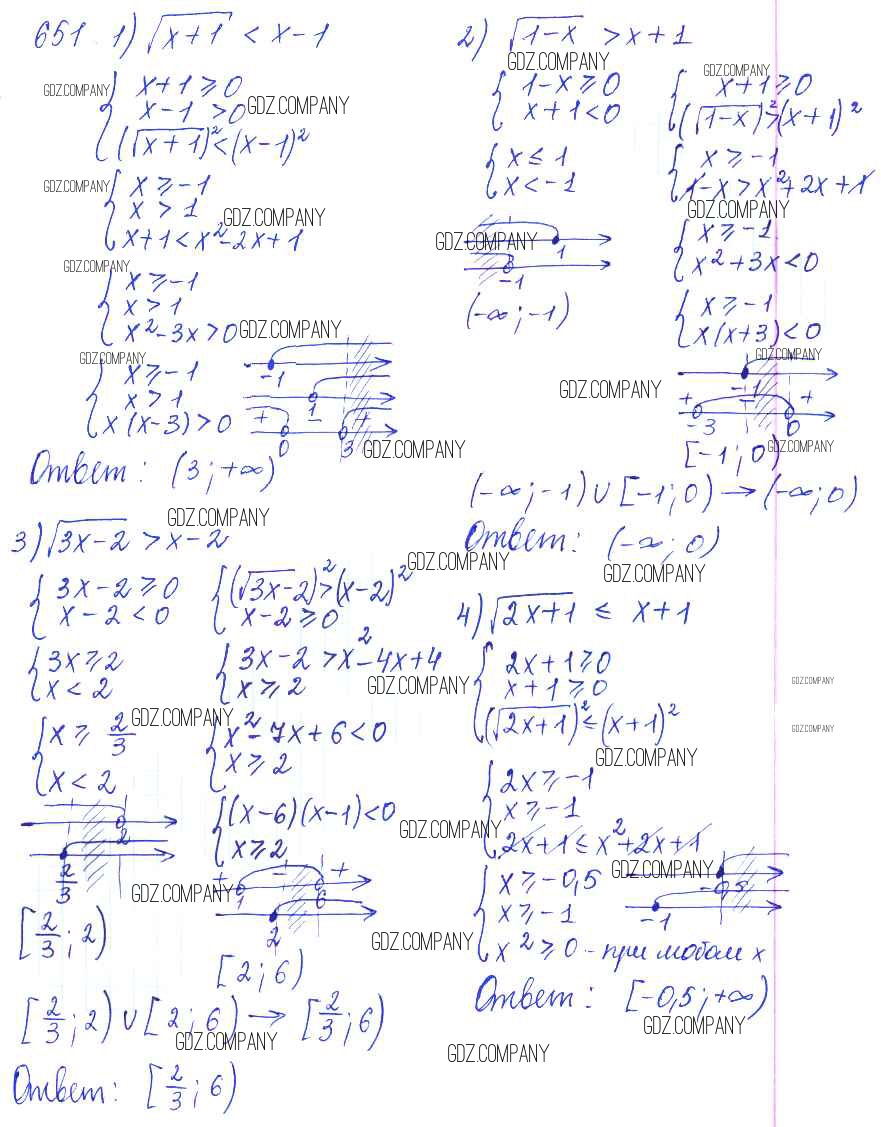 651. 1) √(x+1) < x-1
GDZ.COMPANY
{ x+1 ⩾ 0
x-1 > 0 GDZ.COMPANY
(√(x+1))² < (x-1)²
GDZ.COMPANY
{ x ⩾ -1
x > 1 GDZ.COMPANY
x+1 < x²-2x+1
GDZ.COMPANY
{ x ⩾ -1
x > 1
x²-3x > 0 GDZ.COMPANY
GDZ.COMPANY
{ x ⩾ -1
x > 1
x(x-3) > 0
-1
1
+ - +
0 3 GDZ.COMPANY
Ответ: (3; +∞)
2) √(1-x) > x+1
GDZ.COMPANY
{ 1-x ⩾ 0
x+1 < 0
{ x ≤ 1
x < -1
GDZ.COMPANY
1
-1
(-∞; -1)
GDZ.COMPANY
{ x+1 ⩾ 0
(√(1-x))² > (x+1)²
{ x ⩾ -1
1-x > x²+2x+1
GDZ.COMPANY
{ x ⩾ -1
x²+3x < 0
{ x ⩾ -1
x(x+3) < 0
GDZ.COMPANY
GDZ.COMPANY
-1
+ - +
-3 0
[-1; 0)
GDZ.COMPANY
(-∞; -1) ∪ [-1; 0) → (-∞; 0)
Ответ: (-∞; 0)
GDZ.COMPANY
GDZ.COMPANY
3) √(3x-2) > x-2
{ 3x-2 ⩾ 0
x-2 < 0
{ 3x ⩾ 2
x < 2
{ x ⩾ 2/3 GDZ.COMPANY
x < 2
2
2/3
GDZ.COMPANY
[2/3; 2)
{ (√(3x-2))² > (x-2)²
x-2 ⩾ 0
GDZ.COMPANY
{ 3x-2 > x²-4x+4
x ⩾ 2 GDZ.COMPANY
{ x²-7x+6 < 0
x ⩾ 2
{ (x-6)(x-1) < 0
x ⩾ 2
GDZ.COMPANY
+ - +
1 6
2
GDZ.COMPANY
[2; 6)
[2/3; 2) ∪ [2; 6) → [2/3; 6)
GDZ.COMPANY
Ответ: [2/3; 6)
4) √(2x+1) ≤ x+1
{ 2x+1 ⩾ 0
x+1 ⩾ 0
(√(2x+1))² ≤ (x+1)²
GDZ.COMPANY
GDZ.COMPANY
GDZ.COMPANY
{ 2x ⩾ -1
x ⩾ -1
2x+1 ≤ x²+2x+1
GDZ.COMPANY
{ x ⩾ -0,5
x ⩾ -1
x² ⩾ 0 - при любом x
-0,5
-1
Ответ: [-0,5; +∞)
GDZ.COMPANY
GDZ.COMPANY